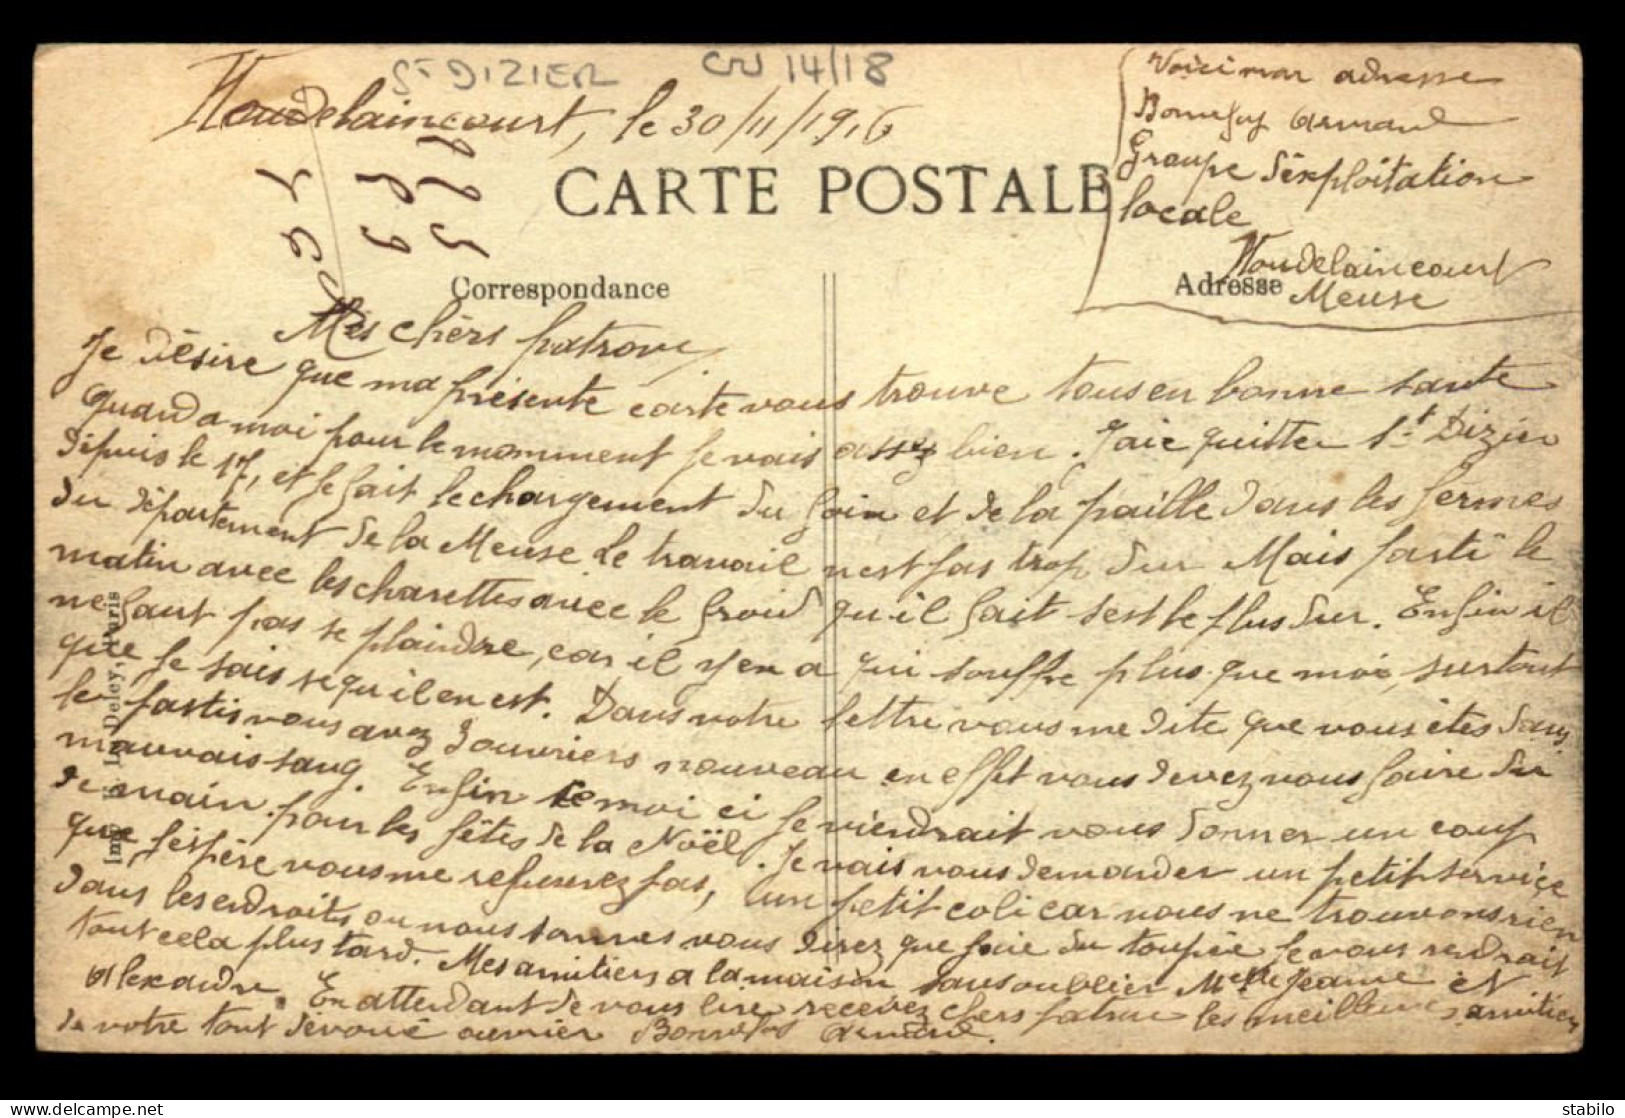 St DIZIER
CW 14/18
Houdelaincourt, le 30/11/1916
Voici mon adresse
Bonnefoy Armand
Groupe d'éxploitation
locale
Houdelaincourt
Meuse
CARTE POSTALE
Correspondance
Adresse
Mes chérs patrons
Je désire que ma présente carte vous trouve tous en bonne sante
quand a moi pour le momment je vais assez bien. Jaie quitter St Dizier
depuis le 17, et je fait le chargement du foin et de la paille dans les fermes
du département de la Meuse Le travail n'est pas trop dur Mais parti le
matin avec les charettes avec le froid qu'il fait s'est le plus dur. Enfin il
ne faut pas se plaindre, car il y en a qui souffre plus que moi, surtout
que je sais se qu'il en est. Dans votre lettre vous me dite que vous êtes dans
le vous avez d'ouvriers nouveau en effet vous devez vous faire du
mauvais sang. Enfin moi ci je viendrait vous donner un coup
de main pour les fêtes de la Noël. Je vais vous demander un petit service
que j'éspére vous me refuserez pas, un petit coli car nous ne trouvons rien
dans les endroits ou nous sommes vous direz que jaie du toupée je vous rendrait
tout cela plus tard. Mes amitiers a la maison sans oublier Melle Jeanne et
Alexandre. En attendant de vous lire recevez chers patron les meilleures amities
de votre tout dévoué ouvrier Bonnefoy Armand.
Imp. L. Deley, Paris